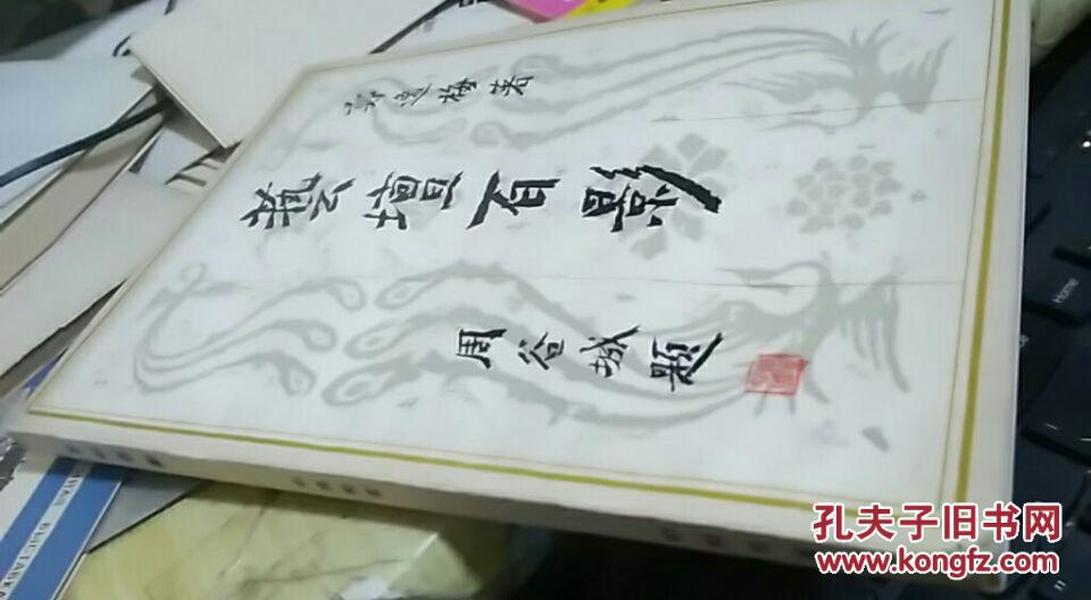 鄭逸梅著
藝壇百影
周谷城题
Home
孔夫子旧书网
www.kongfz.com